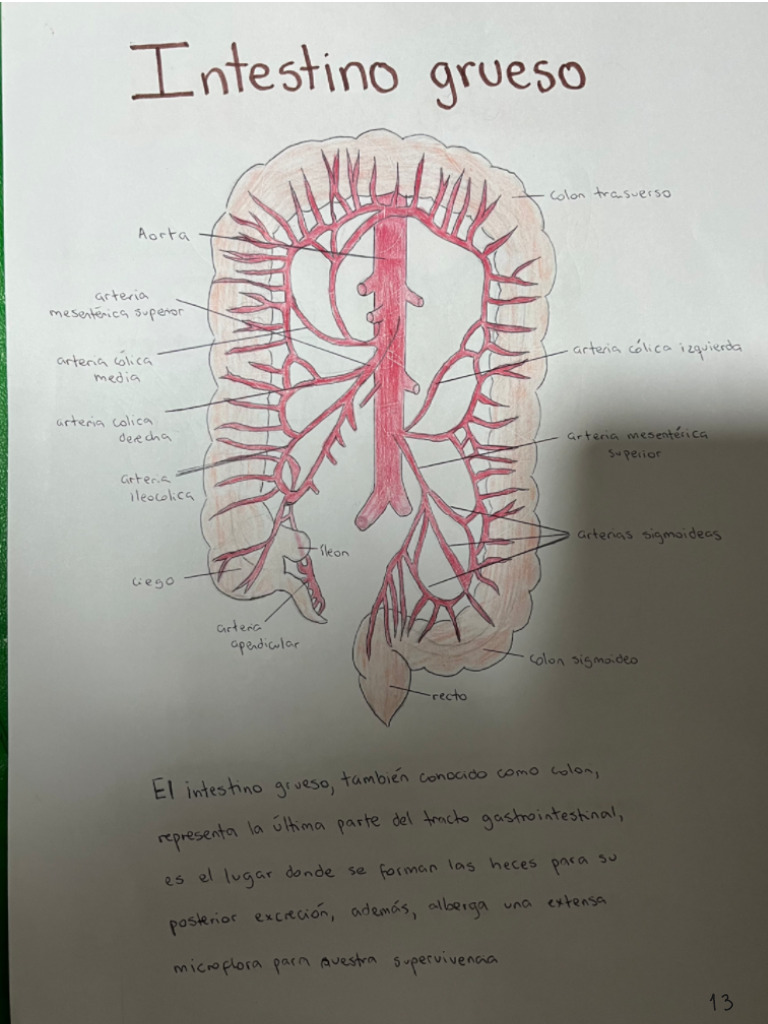 Intestino grueso
colon trasverso
Aorta
arteria
mesentérica superior
arteria cólica
media
arteria cólica izquierda
arteria colica
derecha
arteria mesentérica
superior
arteria
ileocolica
arterias sigmoideas
íleon
ciego
arteria
apendicular
colon sigmoideo
recto
El intestino grueso, también conocido como colon,
representa la última parte del tracto gastrointestinal,
es el lugar donde se forman las heces para su
posterior excreción, además, alberga una extensa
microflora para nuestra supervivencia
13